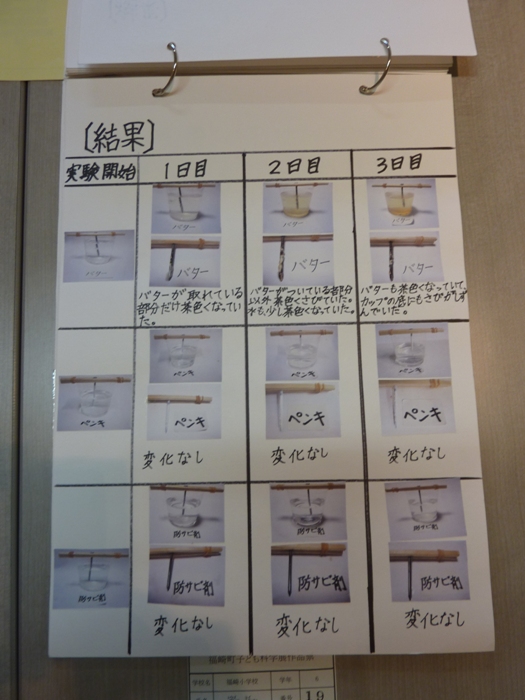 〔結果〕
実験開始 1日目 2日目 3日目
バター バター バター バター
バター バター バター
バターが取れている
部分だけ茶色くなってい
た。
バターがついている部分
以外茶色くさびていた。
水も、少し茶色くなっていた。
バターも茶色くなっていて、
カップの底にもさびがしず
んでいた。
ペンキ ペンキ ペンキ ペンキ
ペンキ ペンキ ペンキ
変化なし 変化なし 変化なし
防サビ剤 防サビ剤 防サビ剤 防サビ剤
防サビ剤 防サビ剤 防サビ剤
変化なし 変化なし 変化なし
学校名 小学校 学年 4
19